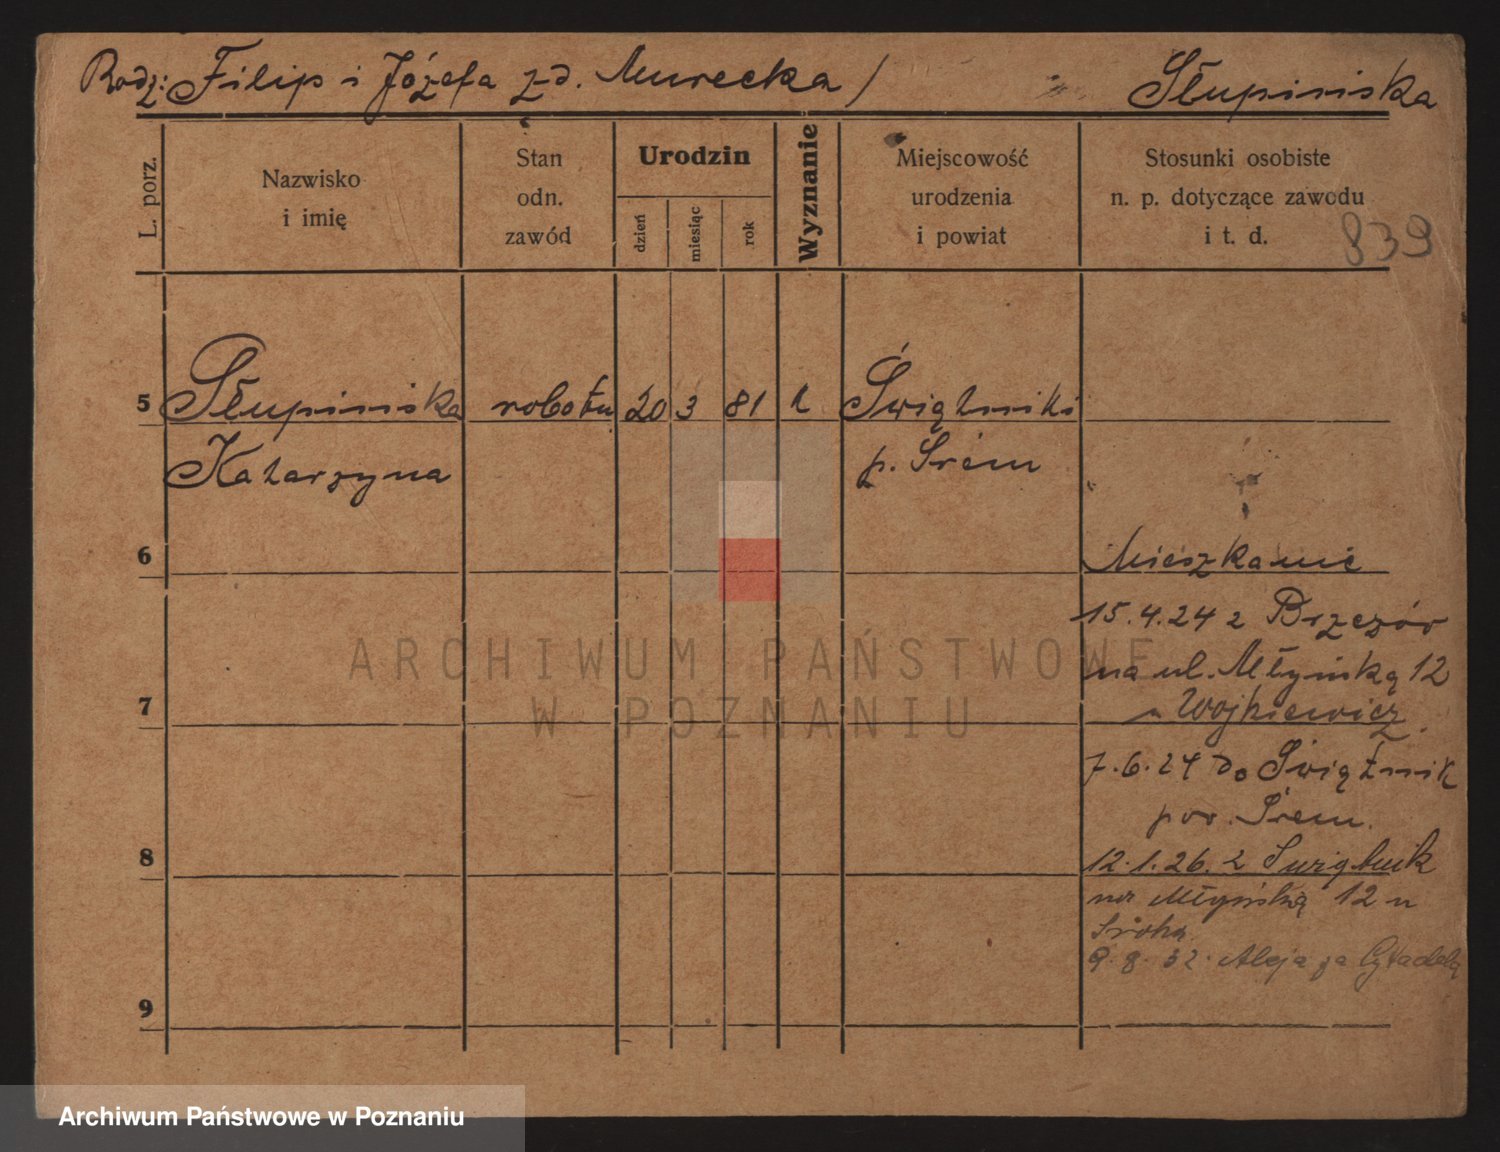 Rodz: Filip i Józefa z d. Murecka /
Słupińska
L. porz.
Nazwisko
i imię
Stan
odn.
zawód
Urodzin
dzień
miesiąc
rok
Wyznanie
Miejscowość
urodzenia
i powiat
Stosunki osobiste
n. p. dotyczące zawodu
i t. d.
839
5 Słupińska robotn 20 3 81 k Świątniki
Katarzyna p. Śrem
6 Mieszkanie
15.4.24 z
na ul. Młyńską 12
7 Wojkiewicz
7.6.24 do Świątnik
pow. Śrem.
8 12.1.26. z Świątnik
na Młyńską 12 u
Sroka
9.8.32. Aleja za Cytadelą
9
ARCHIWUM PAŃSTWOWE
W POZNANIU
Archiwum Państwowe w Poznaniu